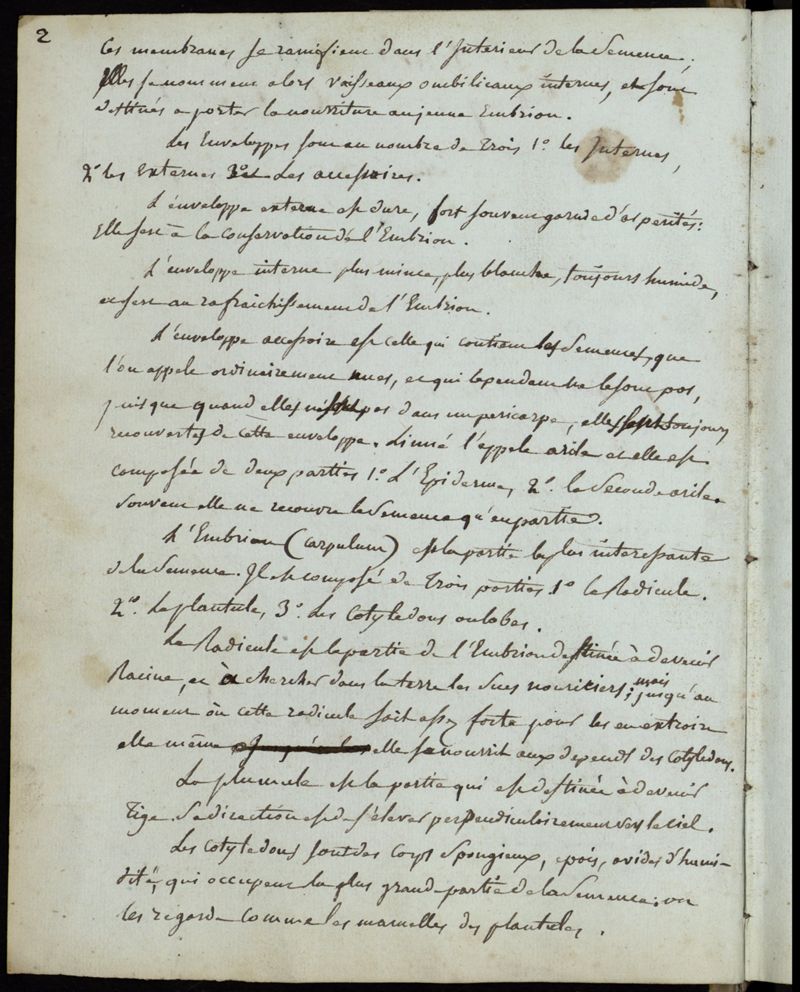 2
Ces membranes se ramifient dans l'Interieur de la Semence;
Elles se nomment alors vaisseaux ombilicaux internes, et sont
destinés a porter la nourriture au jeune Embrion.
Les Enveloppes sont au nombre de Trois 1.° les Internes,
2.° les Externes 3.° et Les accessoires.
L'enveloppe externe est dure, fort souvent garnie d'asperités:
Elle sert à la Conservation de l'Embrion.
L'enveloppe interne plus mince, plus blanche, toujours humide,
et sert au rafraichissement de l'Embrion.
L'enveloppe accessoire est celle qui contient les Semences, que
l'on appele ordinairement nues, et qui cependant ne le sont pas,
puisque quand elles ne sont pas dans un pericarpe, elles sont toujours
recouvertes de cette enveloppe. Linné l'appele arile et elle est
composée de deux parties 1.° L'Epiderme, 2.° le Second arile.
Souvent elle ne recouvre la Semence qu'en partie.
L'Embrion (Corpulum) est la partie la plus interessante
de la Semence. Il est composé de Trois parties 1.° la Radicule.
2.° La plantule, 3.° Les Cotyledons ou lobes.
La Radicule est la partie de l'Embrion destinée à devenir
Racine, et à chercher dans la terre les Sucs nouriciers; mais jusqu'au
moment où cette radicule soit assez forte pour les en extraire
elle même elle se nourrit aux depends des Cotyledons.
La plumule est la partie qui est destinée à devenir
Tige. Sa direction est de s'élever perpendiculairement vers le ciel.
Les Cotyledons sont des Corps Spongieux, epais, avides d'humi-
dité, qui occupent la plus grande partie de la Semence. on
les regarde Comme les mamelles des plantules.